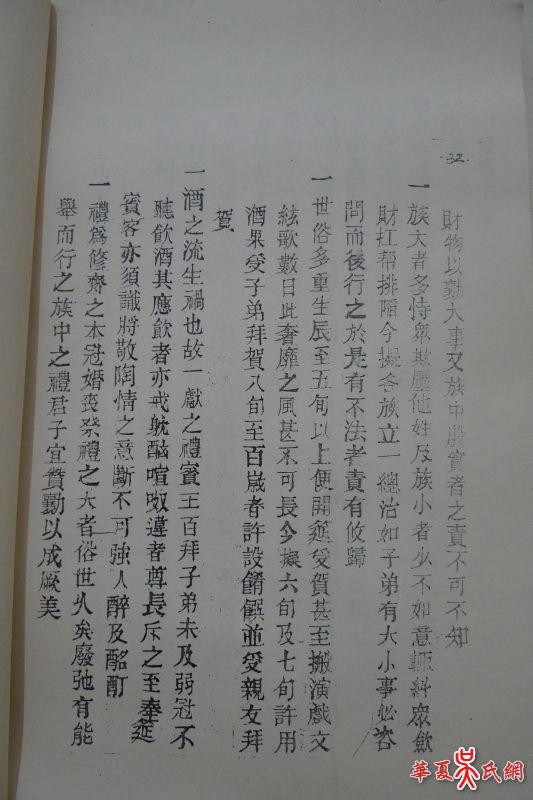 32
財物以勷大事又族中殷實者之責不可不知
一族大者多恃眾欺壓他姓及族小者少不如意輒糾眾歛
財扛帮排陷今擬各族立一總治如子弟有大小事必咨
問而後行之於是有不法者責有攸歸
一世俗多重生辰至五旬以上便開筵受賀甚至搬演戲文
絃歌數日此奢靡之風甚不可長今擬六旬及七旬許用
酒果受子弟拜賀八旬至百歲者許設餚饌並受親友拜
賀
一酒之流生禍也故一獻之禮賓主百拜子弟未及弱冠不
聽飲酒其應飲者亦戒躭酗喧呶違者尊長斥之至奉筵
賓客亦須識將敬陶情之意斷不可強人醉及酩酊
一禮爲修齊之本冠婚喪祭禮之大者俗世久矣廢弛有能
舉而行之族中之禮君子宜贊勷以成厥美
華夏吴氏網